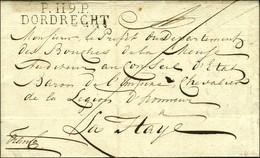 P.119.P.
DORDRECHT
Monsieur le Prefet du Departement
des Bouches de la Meuse
Auditeur au Conseil d'Etat
Baron de l'Empire Chevalier
de la Legion d'Honneur
La Haye